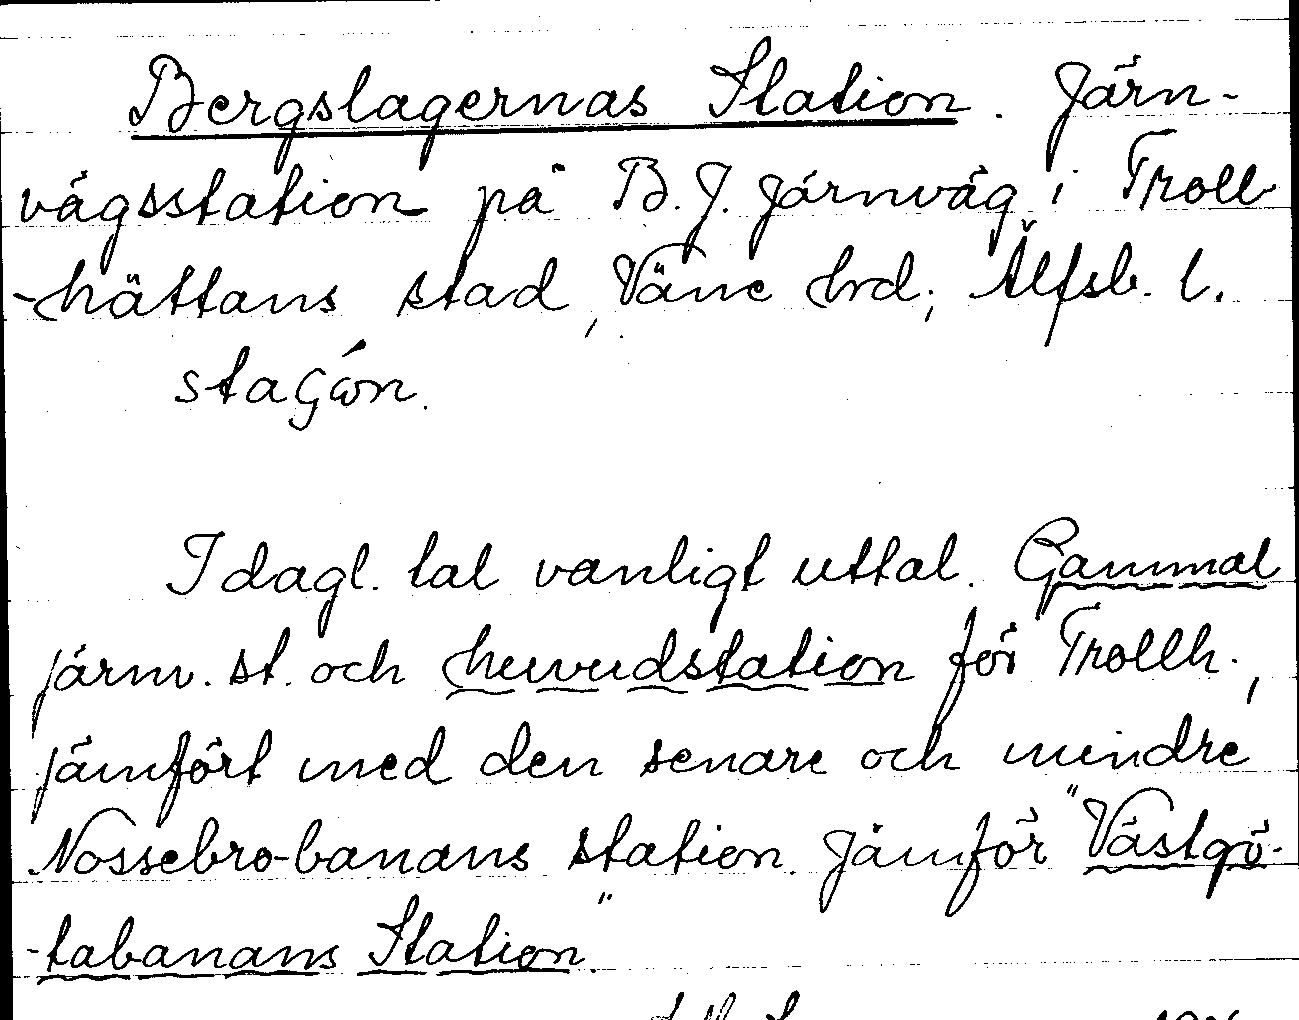 Bergslagernas Station. Järn-
vägsstation på B.J. Järnväg i Troll-
-hättans stad, Väne hrd; Älfsb. l.
I dagl. tal vanligt uttal. Gammal
järnv. st. och huvudstation för Trollh.,
jämfört med den senare och mindre
Nossebro-banans station. Jämför "Västgö-
-tabanans Station".